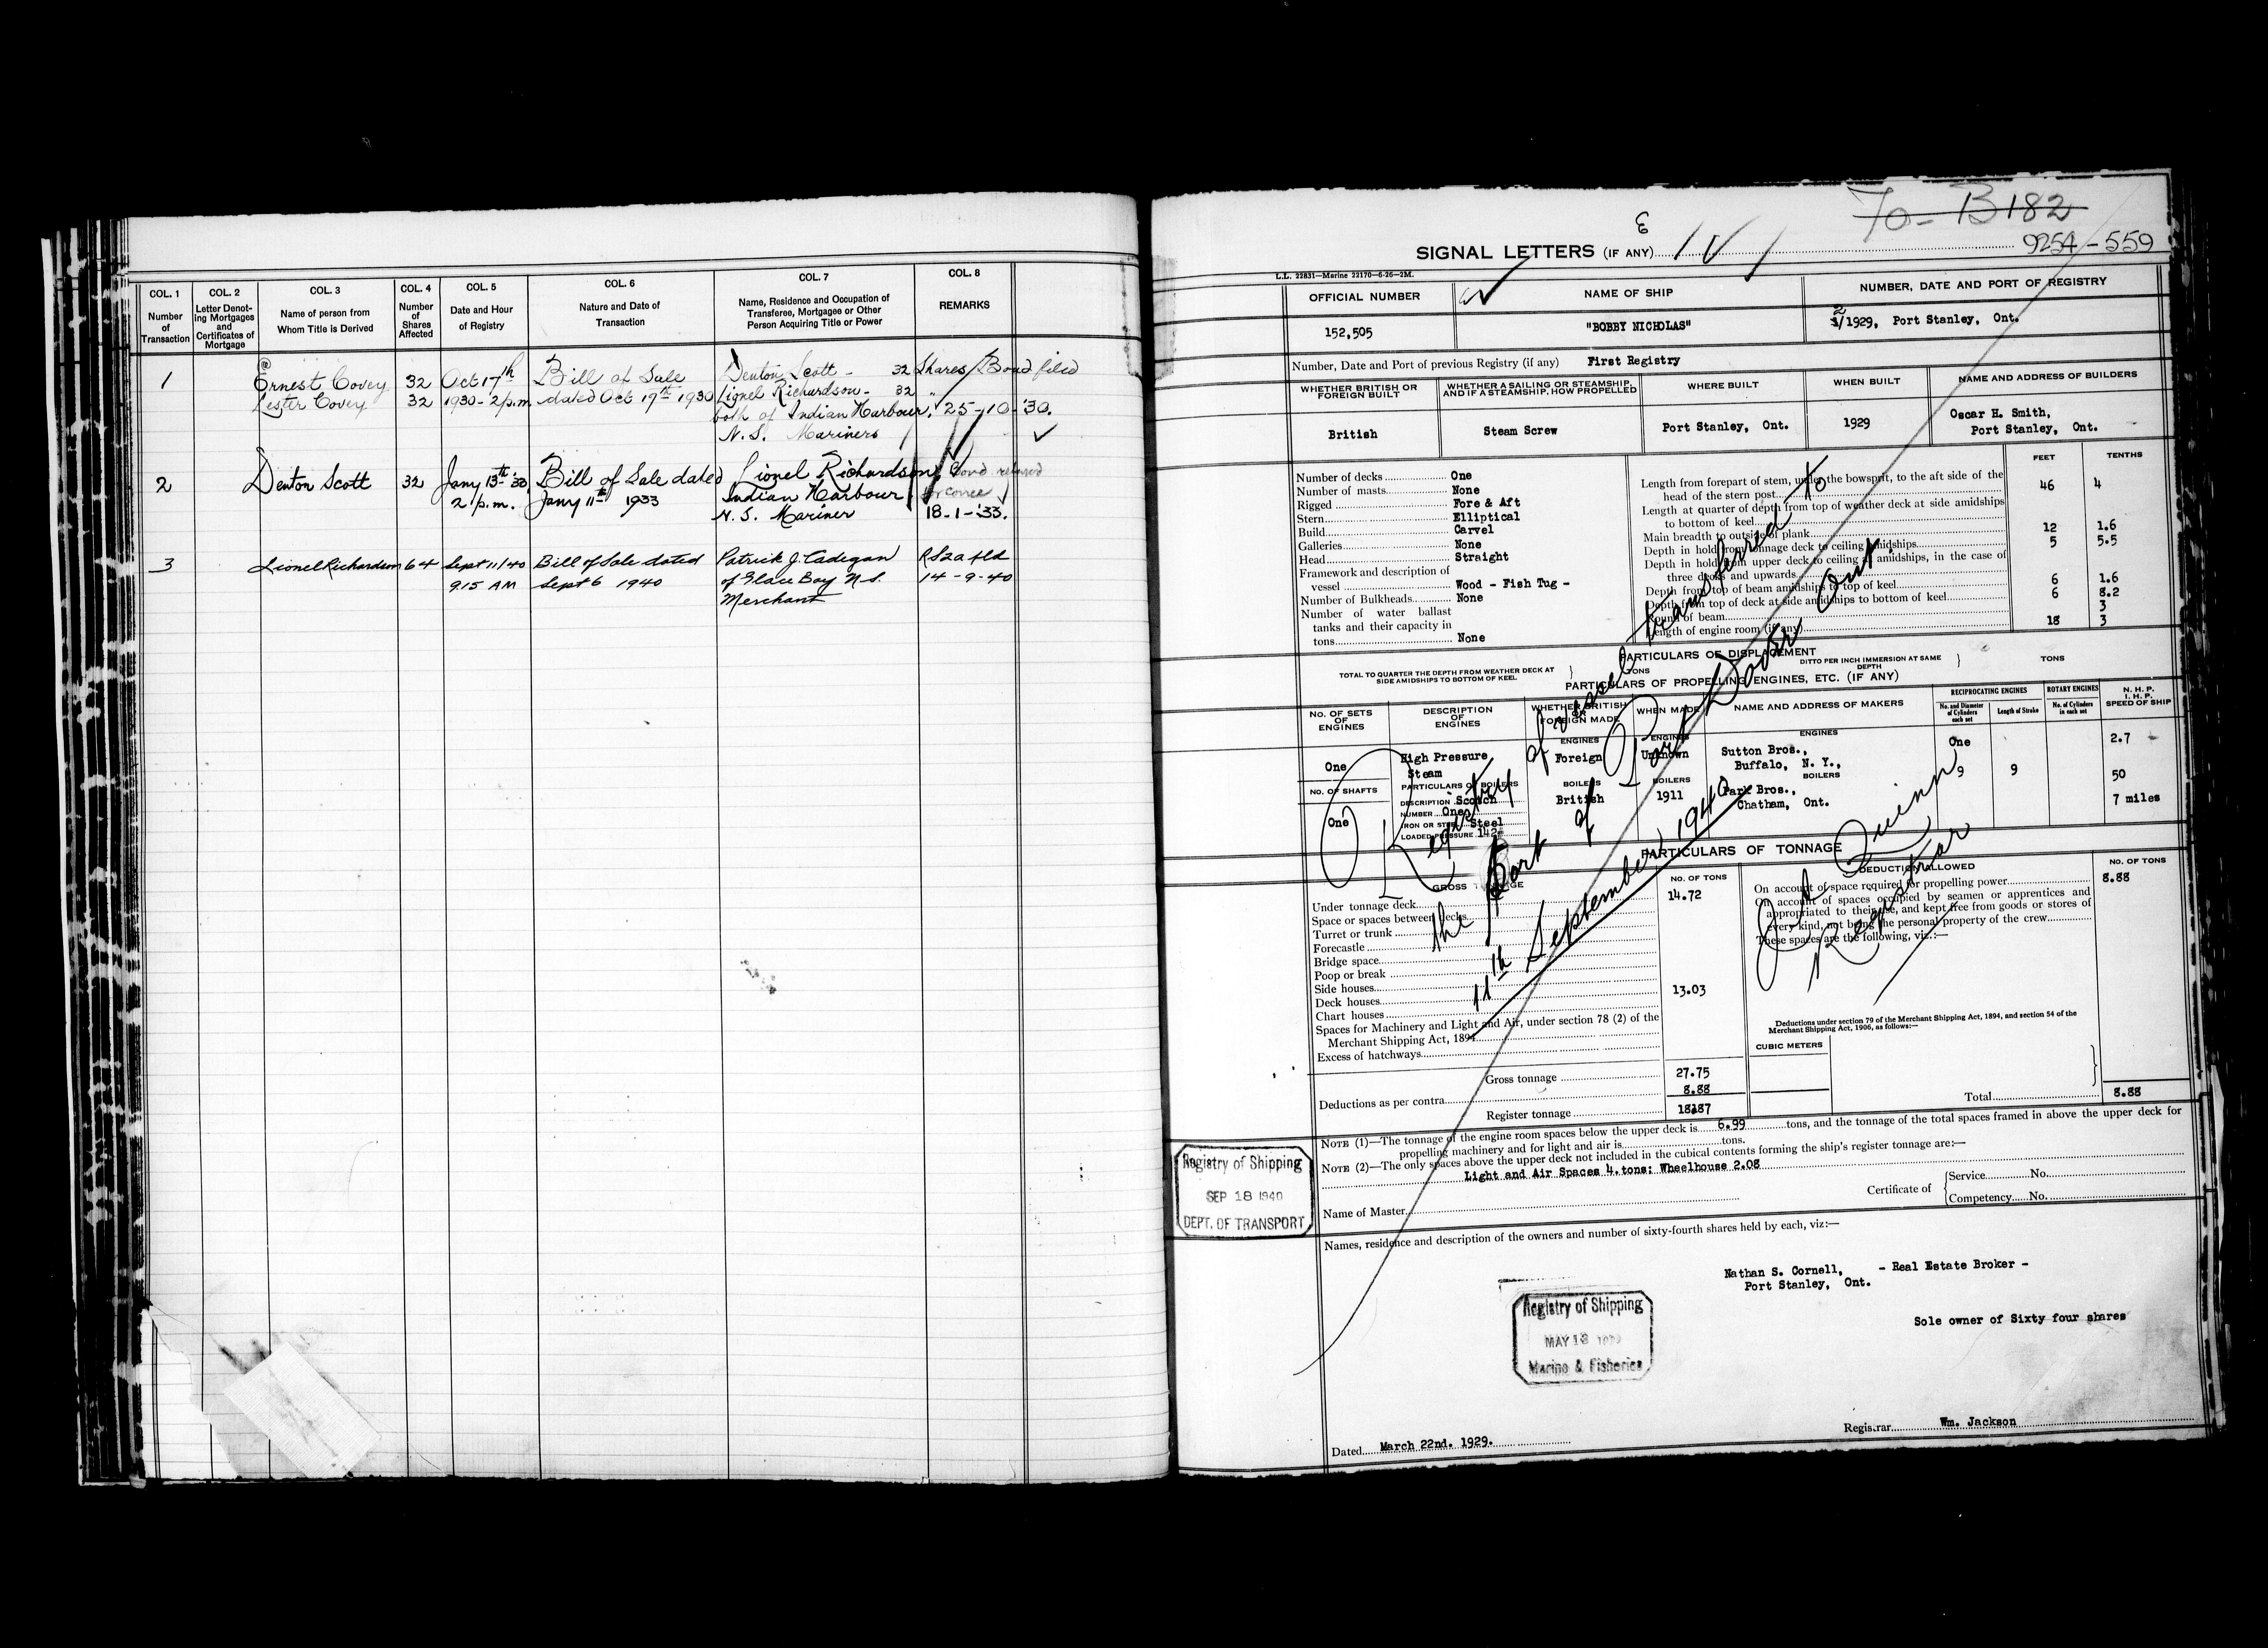 COL. 1
Number
of
Transaction
COL. 2
Letter Denot-
ing Mortgages
and
Certificates of
Mortgage
COL. 3
Name of person from
Whom Title is Derived
COL. 4
Number
of
Shares
Affected
COL. 5
Date and Hour
of Registry
COL. 6
Nature and Date of
Transaction
COL. 7
Name, Residence and Occupation of
Transferee, Mortgagee or Other
Person Acquiring Title or Power
COL. 8
REMARKS
1
Ernest Covey 32 Oct 17th Bill of Sale Denton Scott - 32 Shares Bond filed
Lester Covey 32 1930 - 2 p.m. dated Oct 17th 1930 Lionel Richardson - 32 "
both of Indian Harbour, 25-10-'30.
N.S. Mariners
2
Denton Scott 32 Jany 13th '33 Bill of Sale dated Lionel Richardson
2 p.m. Jany 11th 1933 Indian Harbour
N.S. Mariner 18-1-'33.
3
Lionel Richardson 64 Sept 11/40 Bill of Sale dated Patrick J. Cadegan
9.15 AM Sept 6 1940 of Glace Bay N.S. 14-9-40
Merchant
To - B182
9254 - 559
SIGNAL LETTERS (IF ANY)
L.L. 22831—Marine 22170—6-26—2M.
OFFICIAL NUMBER
NAME OF SHIP
NUMBER, DATE AND PORT OF REGISTRY
152,505
"BOBBY NICHOLAS"
2/1929, Port Stanley, Ont.
Number, Date and Port of previous Registry (if any) First Registry
WHETHER BRITISH OR
FOREIGN BUILT
WHETHER A SAILING OR STEAMSHIP,
AND IF A STEAMSHIP, HOW PROPELLED
WHERE BUILT
WHEN BUILT
NAME AND ADDRESS OF BUILDERS
British
Steam Screw
Port Stanley, Ont.
1929
Oscar H. Smith,
Port Stanley, Ont.
Number of decks One
Number of masts None
Rigged Fore & Aft
Stern Elliptical
Build Carvel
Galleries None
Head Straight
Framework and description of
vessel Wood - Fish Tug -
Number of Bulkheads None
Number of water ballast
tanks and their capacity in
tons None
FEET TENTHS
Length from forepart of stem, under the bowsprit, to the aft side of the
head of the stern post 46 4
Length at quarter of depth from top of weather deck at side amidships
to bottom of keel
Main breadth to outside of plank 12 1.6
Depth in hold from tonnage deck to ceiling amidships 5 5.5
Depth in hold from upper deck to ceiling at amidships, in the case of
three decks and upwards
Depth from top of beam amidships to top of keel 6 1.6
Depth from top of deck at side amidships to bottom of keel 6 8.2
Round of beam 3
Length of engine room (if any) 18 3
PARTICULARS OF DISPLACEMENT
TOTAL TO QUARTER THE DEPTH FROM WEATHER DECK AT
SIDE AMIDSHIPS TO BOTTOM OF KEEL
TONS
DITTO PER INCH IMMERSION AT SAME
DEPTH
TONS
PARTICULARS OF PROPELLING ENGINES, ETC. (IF ANY)
No. OF SETS
OF
ENGINES
DESCRIPTION
OF
ENGINES
WHETHER BRITISH
OR
FOREIGN MADE
WHEN MADE
NAME AND ADDRESS OF MAKERS
RECIPROCATING ENGINES
No. and Diameter
of Cylinders
each set
Length of Stroke
ROTARY ENGINES
No. of Cylinders
in each set
N. H. P.
I. H. P.
SPEED OF SHIP
ENGINES ENGINES ENGINES
One
High Pressure
Steam
Foreign
Unknown
Sutton Bros.,
Buffalo, N. Y.,
One
9
9
2.7
50
7 miles
No. OF SHAFTS
One
PARTICULARS OF BOILERS
DESCRIPTION Scotch
NUMBER One
IRON OR STEEL Steel
LOADED PRESSURE 142#
BOILERS
British
BOILERS
1911
BOILERS
Park Bros.,
Chatham, Ont.
PARTICULARS OF TONNAGE
GROSS TONNAGE
No. OF TONS
Under tonnage deck 14.72
Space or spaces between decks
Turret or trunk
Forecastle
Bridge space
Poop or break
Side houses
Deck houses 13.03
Chart houses
Spaces for Machinery and Light and Air, under section 78 (2) of the
Merchant Shipping Act, 1894
Excess of hatchways
Gross tonnage 27.75
Deductions as per contra 8.88
Register tonnage 18.87
DEDUCTION ALLOWED
No. OF TONS
On account of space required for propelling power 8.88
On account of spaces occupied by seamen or apprentices and
appropriated to their use, and kept free from goods or stores of
every kind, not being the personal property of the crew
These spaces are the following, viz.:—
Deductions under section 79 of the Merchant Shipping Act, 1894, and section 54 of the
Merchant Shipping Act, 1906, as follows:—
CUBIC METERS
Total 8.88
Registry of vessel transferred to
the Port of Port Dover Ont.
11th September, 1940
Quinn
Registrar
NOTE (1)—The tonnage of the engine room spaces below the upper deck is 6.99 tons, and the tonnage of the total spaces framed in above the upper deck for
propelling machinery and for light and air is tons.
NOTE (2)—The only spaces above the upper deck not included in the cubical contents forming the ship's register tonnage are:—
Light and Air Spaces 4. tons: Wheelhouse 2.08
Registry of Shipping
SEP 18 1940
DEPT. OF TRANSPORT
Name of Master
Certificate of
Service No.
Competency No.
Names, residence and description of the owners and number of sixty-fourth shares held by each, viz:—
Nathan S. Cornell, - Real Estate Broker -
Port Stanley, Ont.
Sole owner of Sixty four shares
Registry of Shipping
MAY 18
Marine & Fisheries
Dated March 22nd. 1929.
Registrar Wm. Jackson